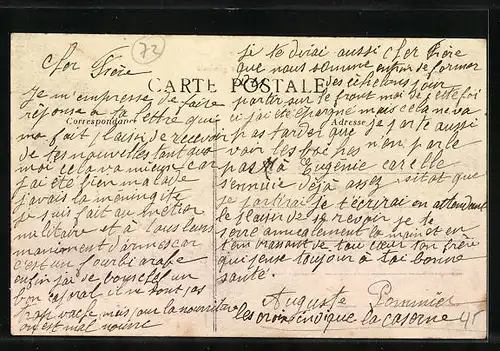 72
Cher Frère
CARTE POSTALE
Correspondance
Adresse
Je m'empresse de faire
réponse a ta lettre qui
ma fait plaisir de recevoir
de tes nouvelles tant que
moi cela va mieux car
j'ai été bien malade
j'avais la meningite
je suis fait au métier
militaire et a tous leurs
maniement d'armes car
c'est un fourbi arabe
enfin j'ai de bouscler un
bon caporal il ne sont pas
trop vache mais pour la nourriture
on est mal nourri
je te dirai aussi cher Frère
que nous somme en train de former
des échelons pour
partir sur le front moi de cette foi
ci j'ai été épargné mais cela ne va
pas tarder que je parte aussi
voir les boches n'en parle
pas à Eugénie car elle
s'ennuie déjà assez sitot que
je partirai je t'écrirai en attendant
le plaisir de te revoir je te
serre amicalement la main et en
t'embrassant de tou cœur ton frère
qui pense toujour à toi bonne
santé.
Auguste Pommier
les croix indique la caserne
45